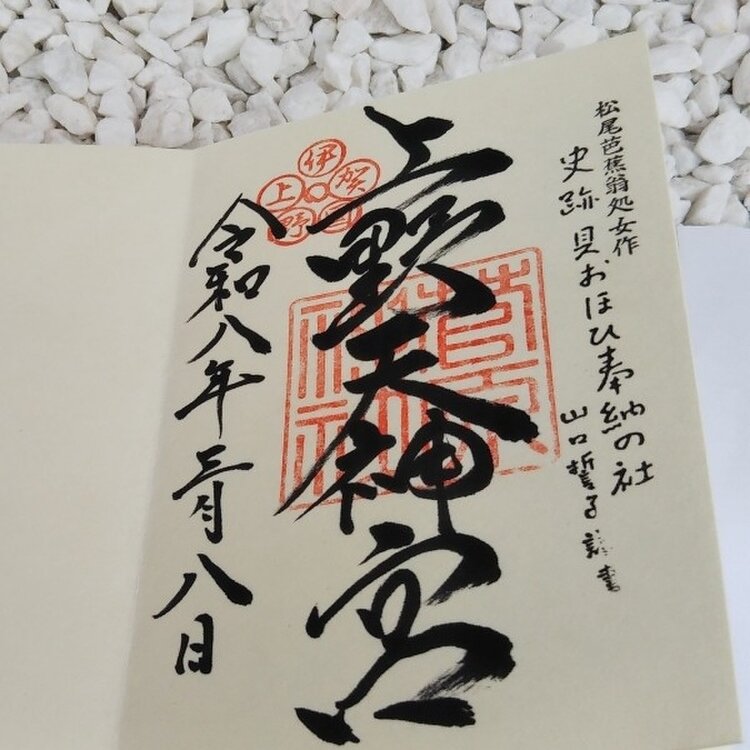 松尾芭蕉翁処女作
史跡貝おほひ奉納の社
山口誓子謹書
上野天神宮
伊賀国上野
菅原神社
令和八年三月八日